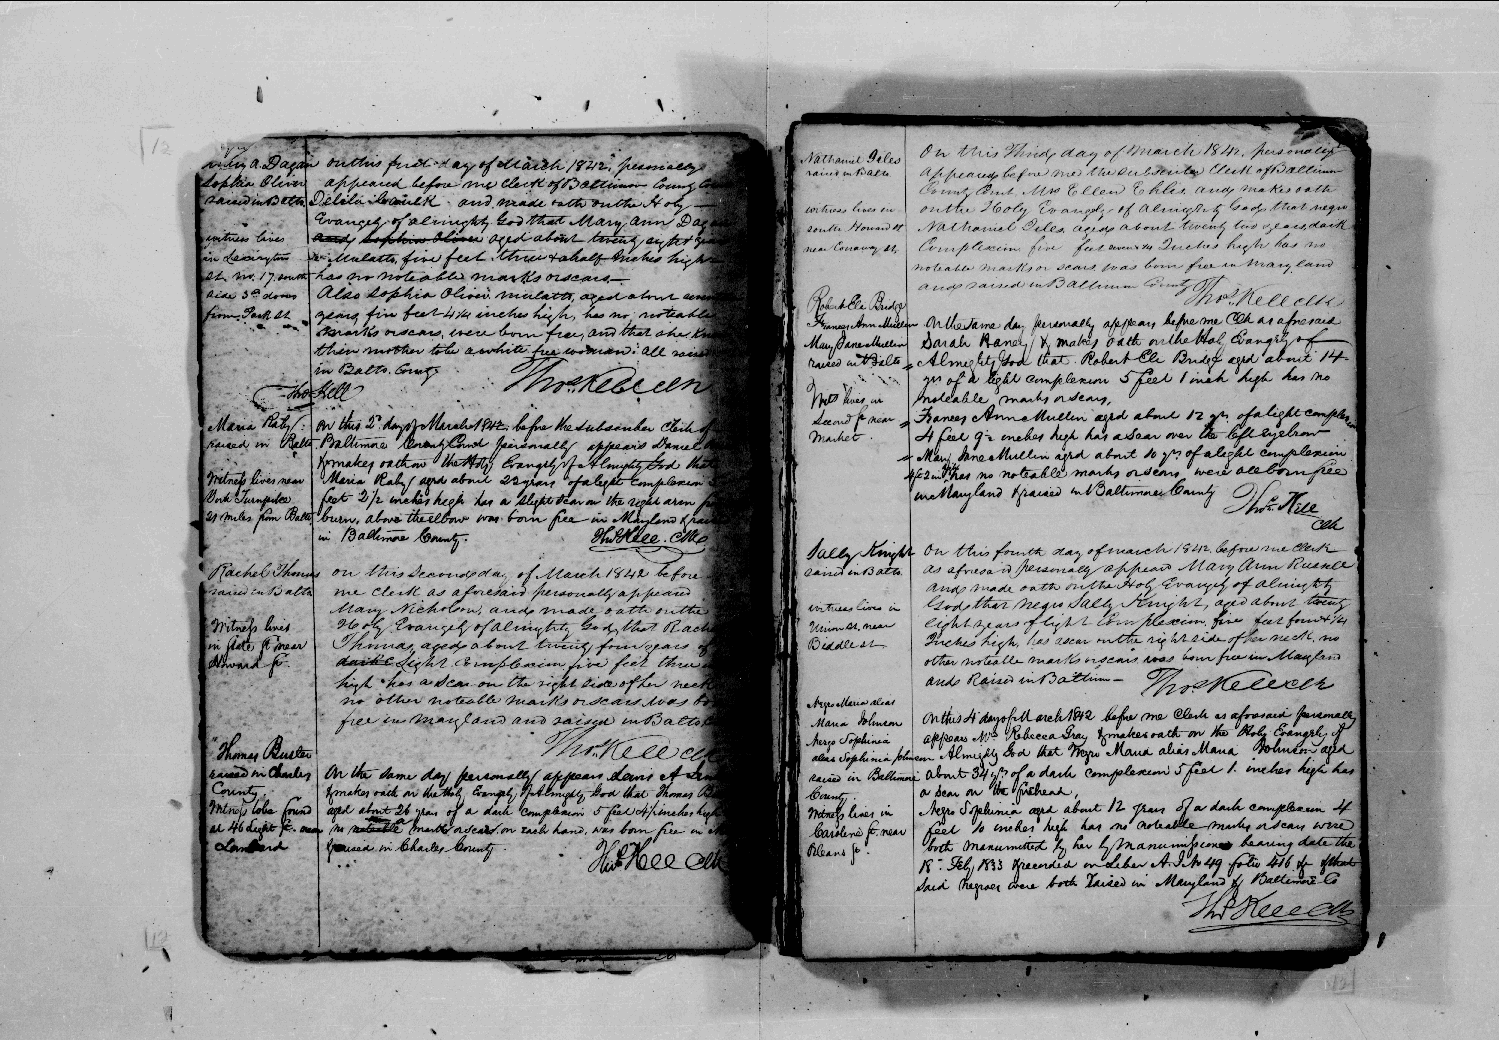 Sophia Oliver
raised in Balto
witness lives
in Lexington
St. no. 17 south
side 3d door
from Park St
on this first day of March 1842, personally
appeared before me Clerk of Baltimore County
and made oath on the Holy
Evangely of almighty God that Mary Ann
aged about twenty eight
Mulatto, five feet three & a half Inches high
has no noteable marks or scars.
Also Sophia Oliver mulatto, aged about
years, five feet 4¼ inches high, has no, noteable
marks or scars, were born free, and that she
their mother to be a white free woman: all
in Balto. County
Thos. Kell Clk
Thos Kell
Maria Raby
raised in Balto
Witness lives near
York Turnpike
21 miles from Balto.
On this 2d day of March 1842. before the subscriber Clerk of
Baltimore County Court personally appears Daniel
& makes oath on the Holy Evangely of Almighty God that
Maria Raby aged about 22 years of a light complexion
feet 2½ inches high has a slight scar on the right arm
burn, above the elbow was born free in Maryland &
in Baltimore County.
Thos Kell. Clk
Rachel Thomas
raised in Balto
Witness lives
in State St. near
Howard St.
on this Second day of March 1842 before
me Clerk as aforesaid personally appeared
Mary Nicholson, and made oath on the
Holy Evangely of Almighty God, that
Thomas, aged about twenty four years of
light complexion five feet three
high has a Scar on the right side of her neck
no other noteable marks or scars was
free in Maryland and raised in Balto
Thos. Kell Clk
Thomas Buster
raised in Charles
County.
Witness to be found
at 46 Light St. near
Lombard
On the same day personally appears Lewis A
& makes oath on the Holy Evangely of Almighty God that Thomas
aged about 26 years of a dark complexion 5 feet 4½ inches high
no noteable marks or scars, on each hand, was born free in
& raised in Charles County.
Thos Kell Clk
Nathaniel Giles
raised in Balto
witness lives in
south Howard St
near Conway St.
On this Third day of March 1842, personally
appeared before me the subscriber Clerk of Baltimore
County Court Mrs Ellen and makes oath
on the Holy Evangely of Almighty God, that negro
Nathaniel Giles, aged about twenty two years, dark
Complexion five feet seven Inches high has no
noteable marks or scars, was born free in Maryland
and raised in Baltimore County
Thos. Kell Clk
Robert Eli Bridge
Frances Ann Mullin
Mary Jane Mullin
raised in Balto
Wits lives in
Second St near
Market.
On the same day personally appears before me Clk as aforesaid
Sarah Haney & makes oath on the Holy Evangely of
Almighty God that Robert Eli Bridge aged about 14
yrs of a light complexion 5 feet 1 inch high has no
noteable marks or scars,
Frances Ann Mullin aged about 12 yrs of a light complexion
4 feet 9½ inches high has a scar over the left eyebrow
Mary Jane Mullin aged about 10 yrs of a light complexion
has no noteable marks or scars were all born free
in Maryland & raised in Baltimore County
Thos. Kell
Clk
Sally Knight
raised in Balto.
witness lives in
Union St. near
Biddle St
On this fourth day of March 1842. before me Clerk
as aforesaid personally appeared Mary Ann Russell
and made oath on the Holy Evangely of Almighty
God, that negro Sally Knight, aged about twenty
eight years of light Complexion, five feet four & ¼
Inches high, has a scar on the right side of her neck, no
other noteable marks or scars was born free in Maryland
and Raised in Baltim
Thos. Kell Clk
Negro Maria alias
Maria Johnson
Negro Sophinia
alias Sophinia Johnson
raised in Baltimore
County.
Witness lives in
Caroline St. near
Orleans St.
On this 4 day of March 1842 before me Clerk as aforesaid personally
appears Mrs Rebecca Gray & makes oath on the Holy Evangely of
Almighty God that Negro Maria alias Maria Johnson aged
about 34 yrs of a dark complexion 5 feet 1 inches high has
a scar on the forehead,
Negro Sophinia aged about 12 years of a dark complexion 4
feet 10 inches high has no noteable marks or scars were
both manumitted by her by Manumission bearing date the
18th Feby 1833 & recorded in Liber A I No 49 folio 416 & that
said negroes were both raised in Maryland & Baltimore Co
Thos Kell Clk